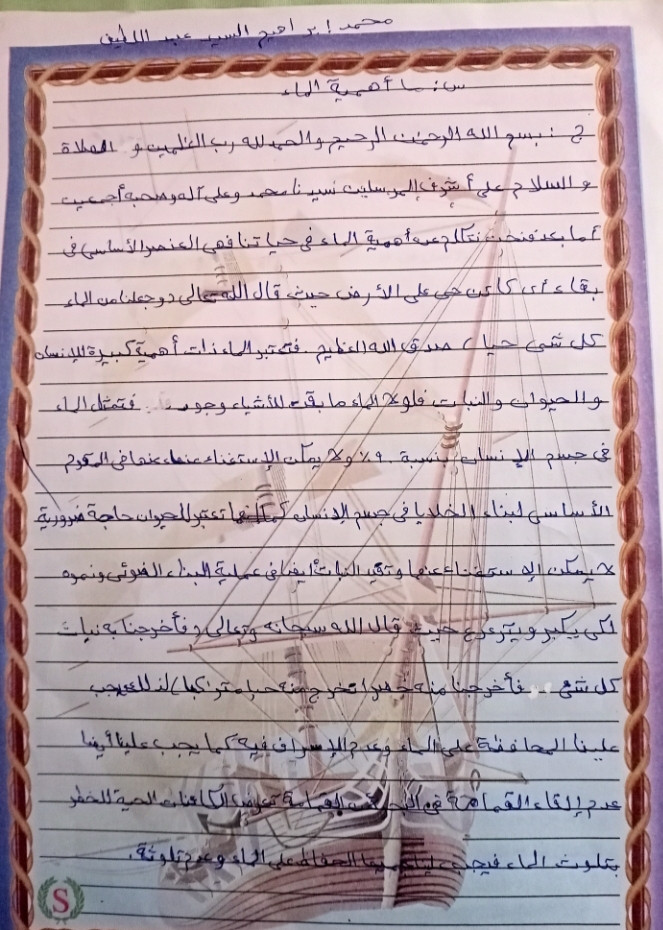 محمد إبراهيم السيد عبد اللطيف
س: ما أهمية الماء
ج: بسم الله الرحمن الرحيم والحمد لله رب العلمين و الصلاة
و السلام على أشرف المرسلين سيدنا محمد وعلى آله وصحبه أجمعين
أما بعد فنحن نتكلم عن أهمية الماء فى حياتنا فهى العنصر الأساسى فى
بقاء أى كائن حى على الأرض حيث قال الله تعالى (وجعلنا من الماء
كل شىء حيا) صدق الله العظيم. فتعتبر الماء ذات أهمية كبيرة للإنسان
والحيوان والنبات فلولا الماء ما بقت للأشياء وجود. فتمثل الماء
فى جسم الإنسان بنسبة ٩٠٪ ولا يمكن الإستغناء عنها فهى المقوم
الأساسى لبناء الخلايا فى جسم الإنسان كما تعتبر للحيوان حاجة ضرورية
لا يمكن الإستغناء عنها وتفيد النبات أيضا فى عملية البناء الضوئى ونموه
لكى يكبر ويترعرع حيث قال الله سبحانه وتعالى (فأخرجنا به نبات
كل شئ فأخرجنا منه خضرا نخرج منه حبا متراكبا) لذلك يجب
علينا المحافظة على الماء وعدم الإسراف فيه كما يجب علينا أيضا
عدم إلقاء القمامة فى القمامة تعرض الكائنات الحية للخطر
بتلوث الماء فيجب علينا جميعا الحفاظ على الماء وعدم تلوثة.
S